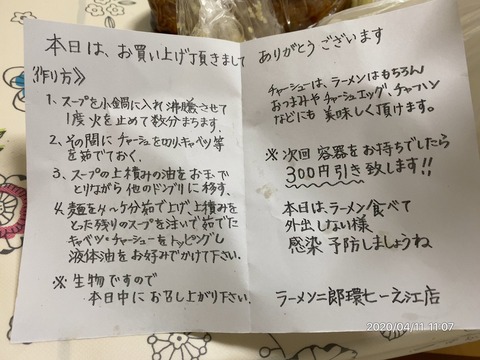 本日は、お買い上げ頂きまして
《作り方》
1、スープを小鍋に入れ沸騰させて
1度火を止めて数分まちます。
2、その間にチャーシューを切り、キャベツ等
を茹でておく。
3、スープの上積みの油をお玉で
とりながら他のドンブリに移す。
4、麺を4〜5分茹で上げ、上積みを
とった残りのスープを注いで茹でた
キャベツ・チャーシューをトッピングし
液体油をお好みでかけて下さい。
※生物ですので
本日中にお召し上がり下さい。
ありがとうございます
チャーシューは、ラーメンはもちろん
おつまみやチャーシューエッグ、チャーハン
などにも美味しく頂けます。
※次回容器をお持ちでしたら
300円引き致します!!
本日は、ラーメン食べて
外出しない様
感染予防しましょうね
ラーメン二郎環七一之江店
2020/04/11 11:07